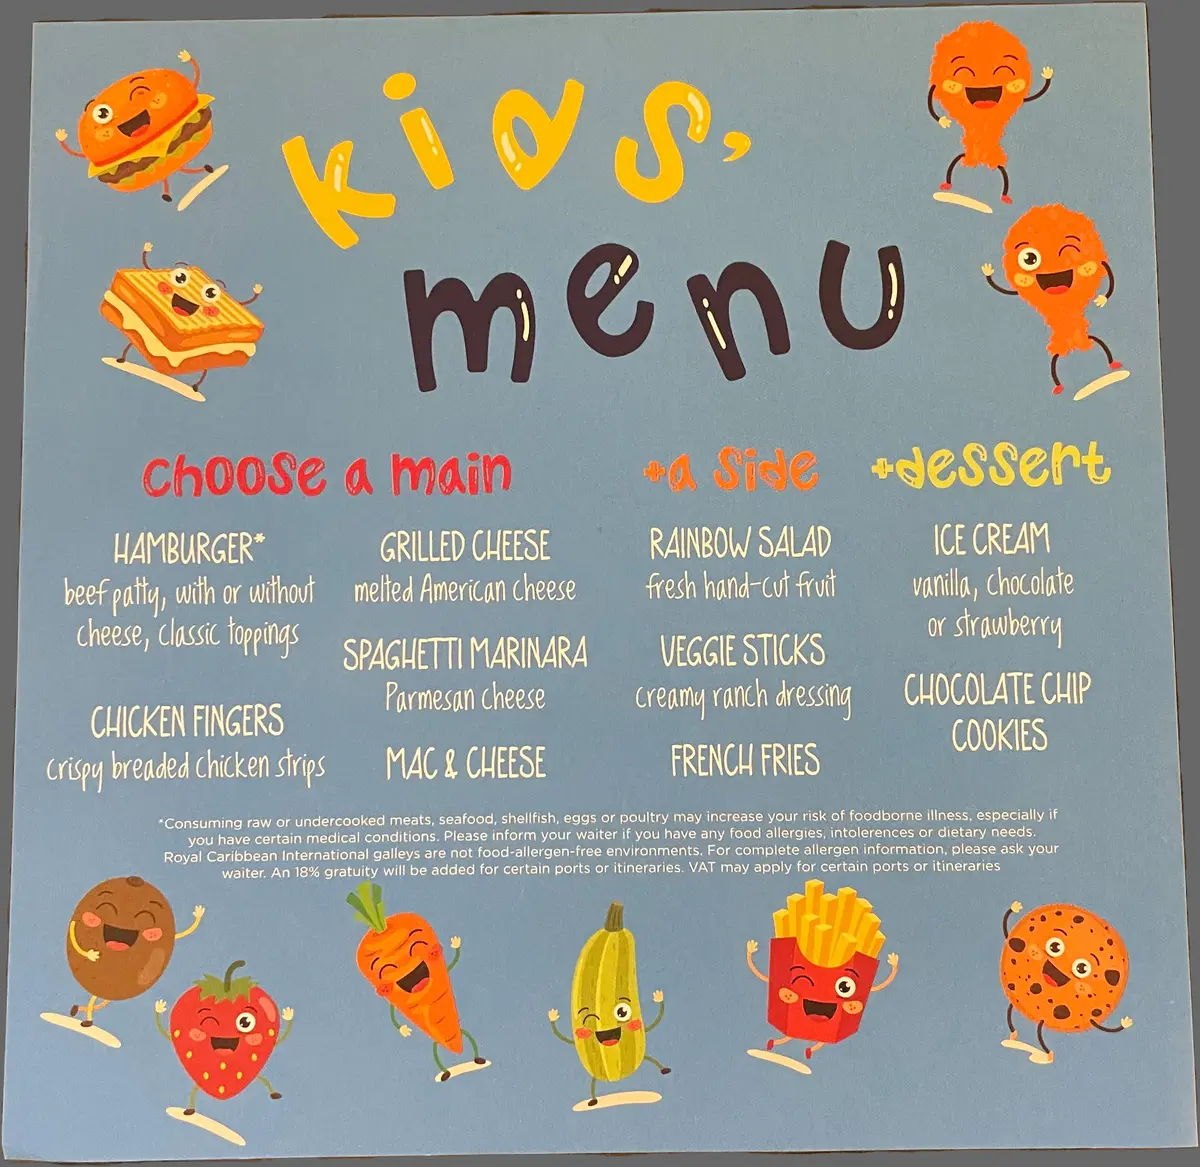 kids'
menu
choose a main
HAMBURGER*
beef patty, with or without
cheese, classic toppings
CHICKEN FINGERS
crispy breaded chicken strips
GRILLED CHEESE
melted American cheese
SPAGHETTI MARINARA
Parmesan cheese
MAC & CHEESE
+a side
RAINBOW SALAD
fresh hand-cut fruit
VEGGIE STICKS
creamy ranch dressing
FRENCH FRIES
+dessert
ICE CREAM
vanilla, chocolate
or strawberry
CHOCOLATE CHIP
COOKIES
*Consuming raw or undercooked meats, seafood, shellfish, eggs or poultry may increase your risk of foodborne illness, especially if
you have certain medical conditions. Please inform your waiter if you have any food allergies, intolerences or dietary needs.
Royal Caribbean International galleys are not food-allergen-free environments. For complete allergen information, please ask your
waiter. An 18% gratuity will be added for certain ports or itineraries. VAT may apply for certain ports or itineraries